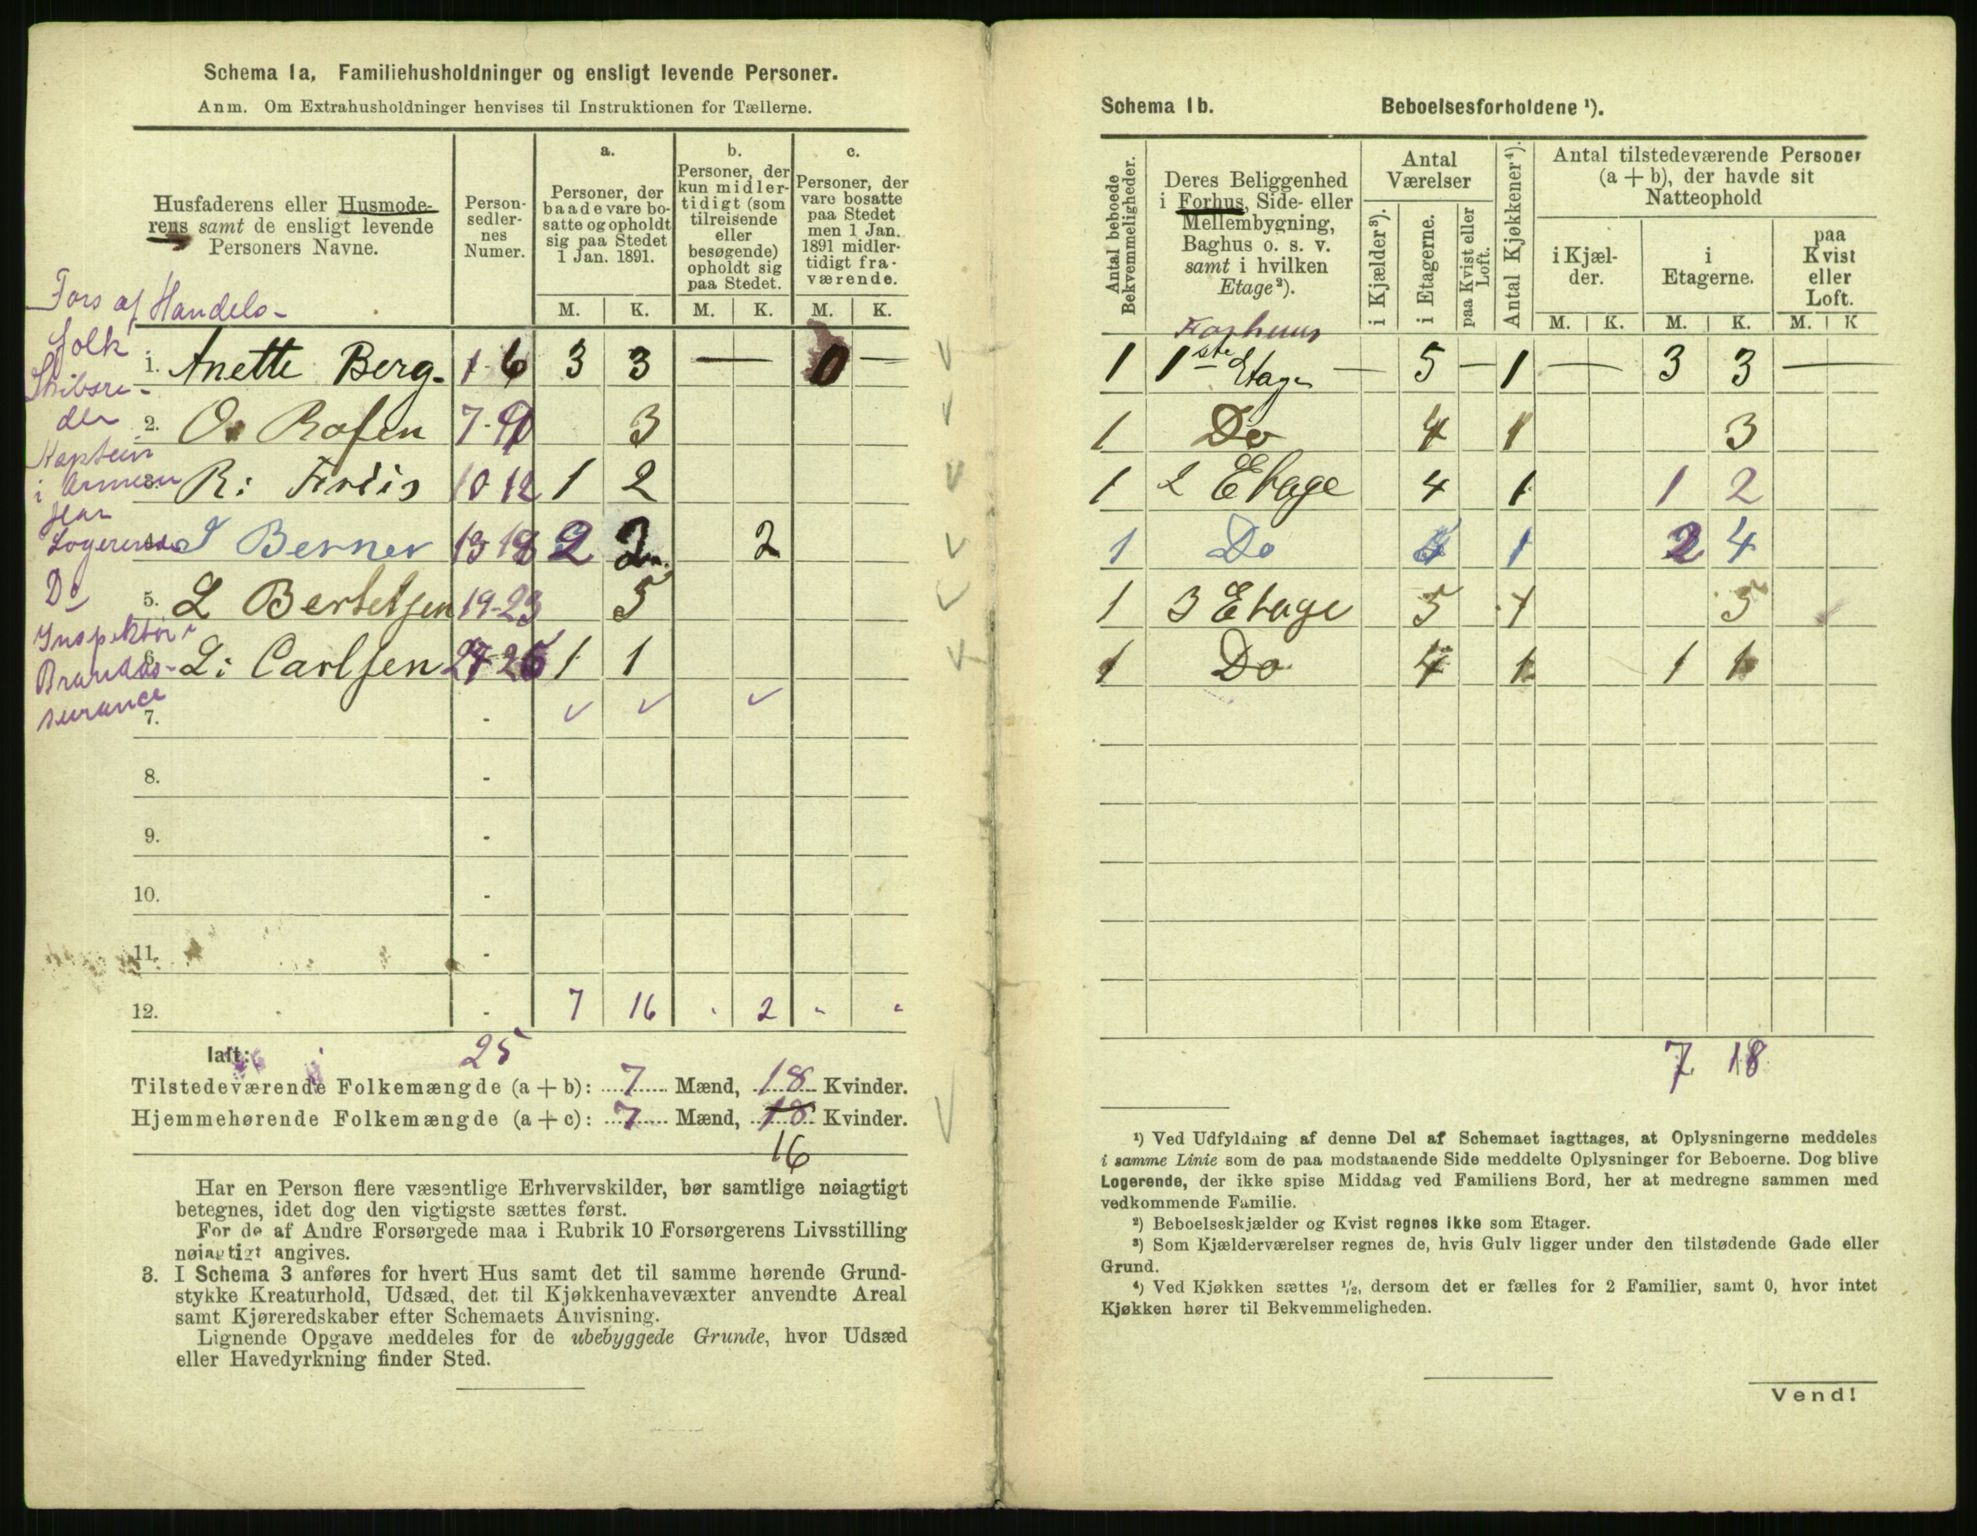 Schema 1a, Familiehusholdninger og ensligt levende Personer.
Anm. Om Extrahusholdninger henvises til Instruktionen for Tællerne.
Husfaderens eller Husmoderens samt de ensligt levende Personers Navne.
Person-sedlernes Numer.
a.
Personer, der baade vare bosatte og opholdt sig paa Stedet 1 Jan. 1891.
b.
Personer, der kun midlertidigt (som tilreisende eller besøgende) opholdt sig paa Stedet.
c.
Personer, der vare bosatte paa Stedet men 1 Jan. 1891 midlertidigt fraværende.
M. K. M. K. M. K.
Fors af Handels-
folk
1. Anette Berg. 1-6 3 3 — 0 —
Skibsre-
der
2. O. Rosen 7-9 3
Kaptein
i Armeen
3. R: Friis 10 12 1 2
Logerende
4. J Berner 13 18 2 2 2
Do
5. L Bertelsen 19-23 5
Inspektør i
Brandas-
surance
6. L: Carlsen 24-25 1 1
7. -
8. -
9. -
10. -
11. -
12. - 7 16 2
Ialt: 25
Tilstedeværende Folkemængde (a + b): 7 Mænd, 18 Kvinder.
Hjemmehørende Folkemængde (a + c): 7 Mænd, 18 Kvinder.
16
Har en Person flere væsentlige Erhvervskilder, bør samtlige nøiagtigt
betegnes, idet dog den vigtigste sættes først.
For de af Andre Forsørgede maa i Rubrik 10 Forsørgerens Livsstilling
nøiagtigt angives.
3. I Schema 3 anføres for hvert Hus samt det til samme hørende Grund-
stykke Kreaturhold, Udsæd, det til Kjøkkenhavevæxter anvendte Areal
samt Kjøreredskaber efter Schemaets Anvisning.
Lignende Opgave meddeles for de ubebyggede Grunde, hvor Udsæd
eller Havedyrkning finder Sted.
Schema 1b. Beboelsesforholdene ¹).
Antal beboede Bekvemmeligheder.
Deres Beliggenhed i Forhus, Side- eller Mellembygning, Baghus o. s. v. samt i hvilken Etage ²).
Antal Værelser
i Kjælder ³).
i Etagerne.
paa Kvist eller Loft.
Antal Kjøkkener ⁴).
Antal tilstedeværende Personer (a + b), der havde sit Natteophold
i Kjælder.
i Etagerne.
paa Kvist eller Loft.
M. K. M. K. M. K
Forhuus
1 1ste Etage — 5 — 1 — 3 3 —
1 Do 4 1 3
1 2 Etage 4 1 1 2
1 Do 1 2 4
1 3 Etage 5 1 5
1 Do 4 1 1 1
7 18
¹) Ved Udfyldning af denne Del af Schemaet iagttages, at Oplysningerne meddeles
i samme Linie som de paa modstaaende Side meddelte Oplysninger for Beboerne. Dog blive
Logerende, der ikke spise Middag ved Familiens Bord, her at medregne sammen med
vedkommende Familie.
²) Beboelseskjælder og Kvist regnes ikke som Etager.
³) Som Kjælderværelser regnes de, hvis Gulv ligger under den tilstødende Gade eller
Grund.
⁴) Ved Kjøkken sættes ½, dersom det er fælles for 2 Familier, samt 0, hvor intet
Kjøkken hører til Bekvemmeligheden.
Vend!